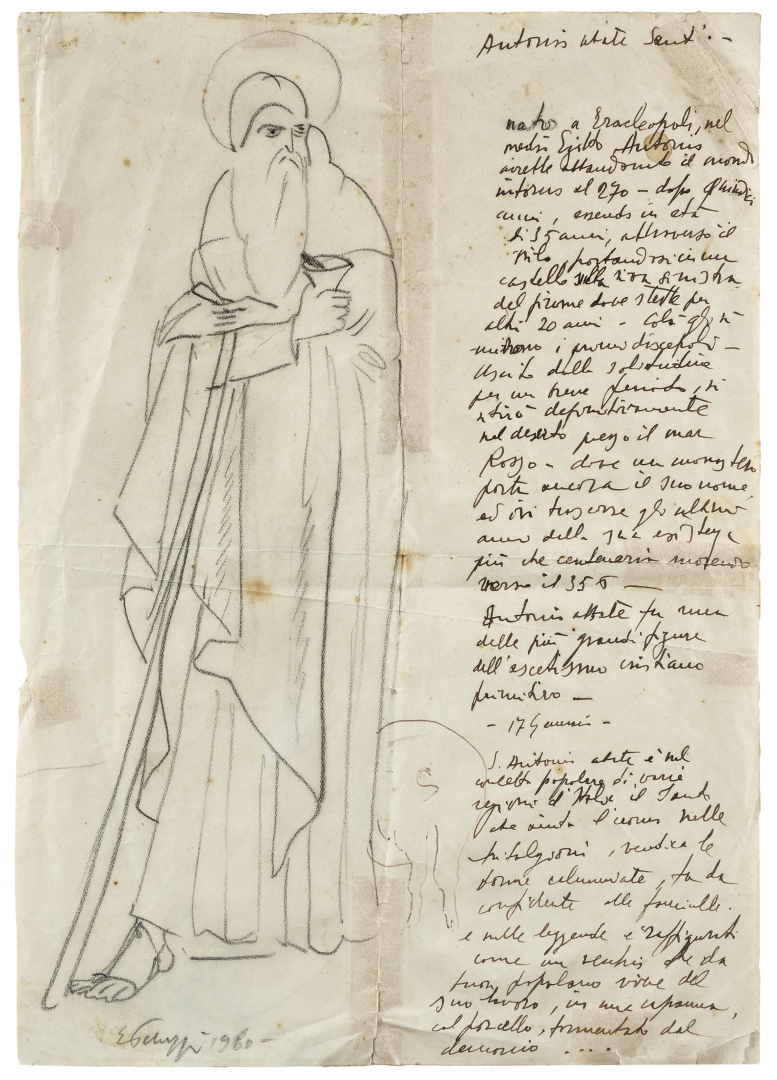 Antonio abate Sant'. -
nato a Eracleopoli, nel
medio Egitto Antonio
avrebbe abbandonato il mondo
intorno al 270 - dopo quindici
anni, essendo in età
di 35 anni, attraversò il
Nilo, portandosi in un
castello sulla riva sinistra
del fiume dove stette per
altri 20 anni - Colà gli si
unirono i primi discepoli -
Uscito dalla solitudine
per un breve periodo, si
ritirò definitivamente
nel deserto presso il mar
Rosso - dove un monastero
porta ancora il suo nome,
ed ivi trascorse gli ultimi
anni della sua esistenza
più che centenaria morendo
verso il 356 -
Antonio abate fu una
delle più grandi figure
dell'ascetismo cristiano
primitivo -
- 17 Gennaio -
S. Antonio abate è nel
concetto popolare di varie
regioni d'Italia il Santo
che aiuta l'uomo nelle
tribolazioni, vendica le
donne calunniate, fa da
confidente alle fanciulle.
e nelle leggende è raffigurato
come un vecchio che da
buon popolano vive del
suo lavoro, in una capanna,
col porcello, tormentato dal
demonio ....
1960 -